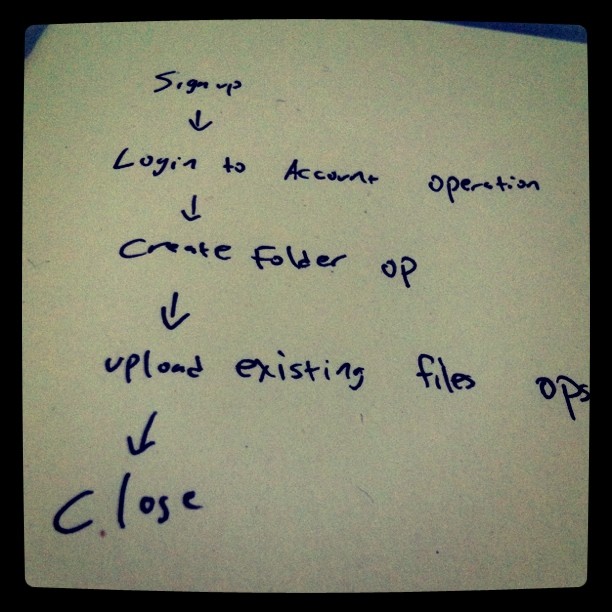 Signup
↓
Login to Account operation
↓
Create Folder op
↓
upload existing files ops
↓
Close